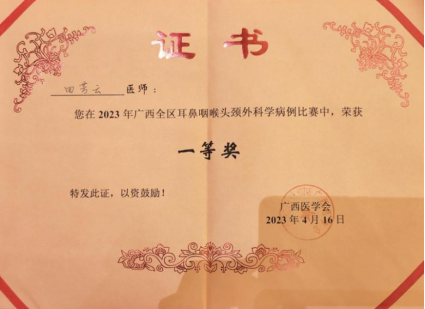 证书
田芳云 医师：
您在 2023 年广西全区耳鼻咽喉头颈外科学病例比赛中，荣获
一等奖
特发此证，以资鼓励！
广西医学会
2023 年 4 月 16 日